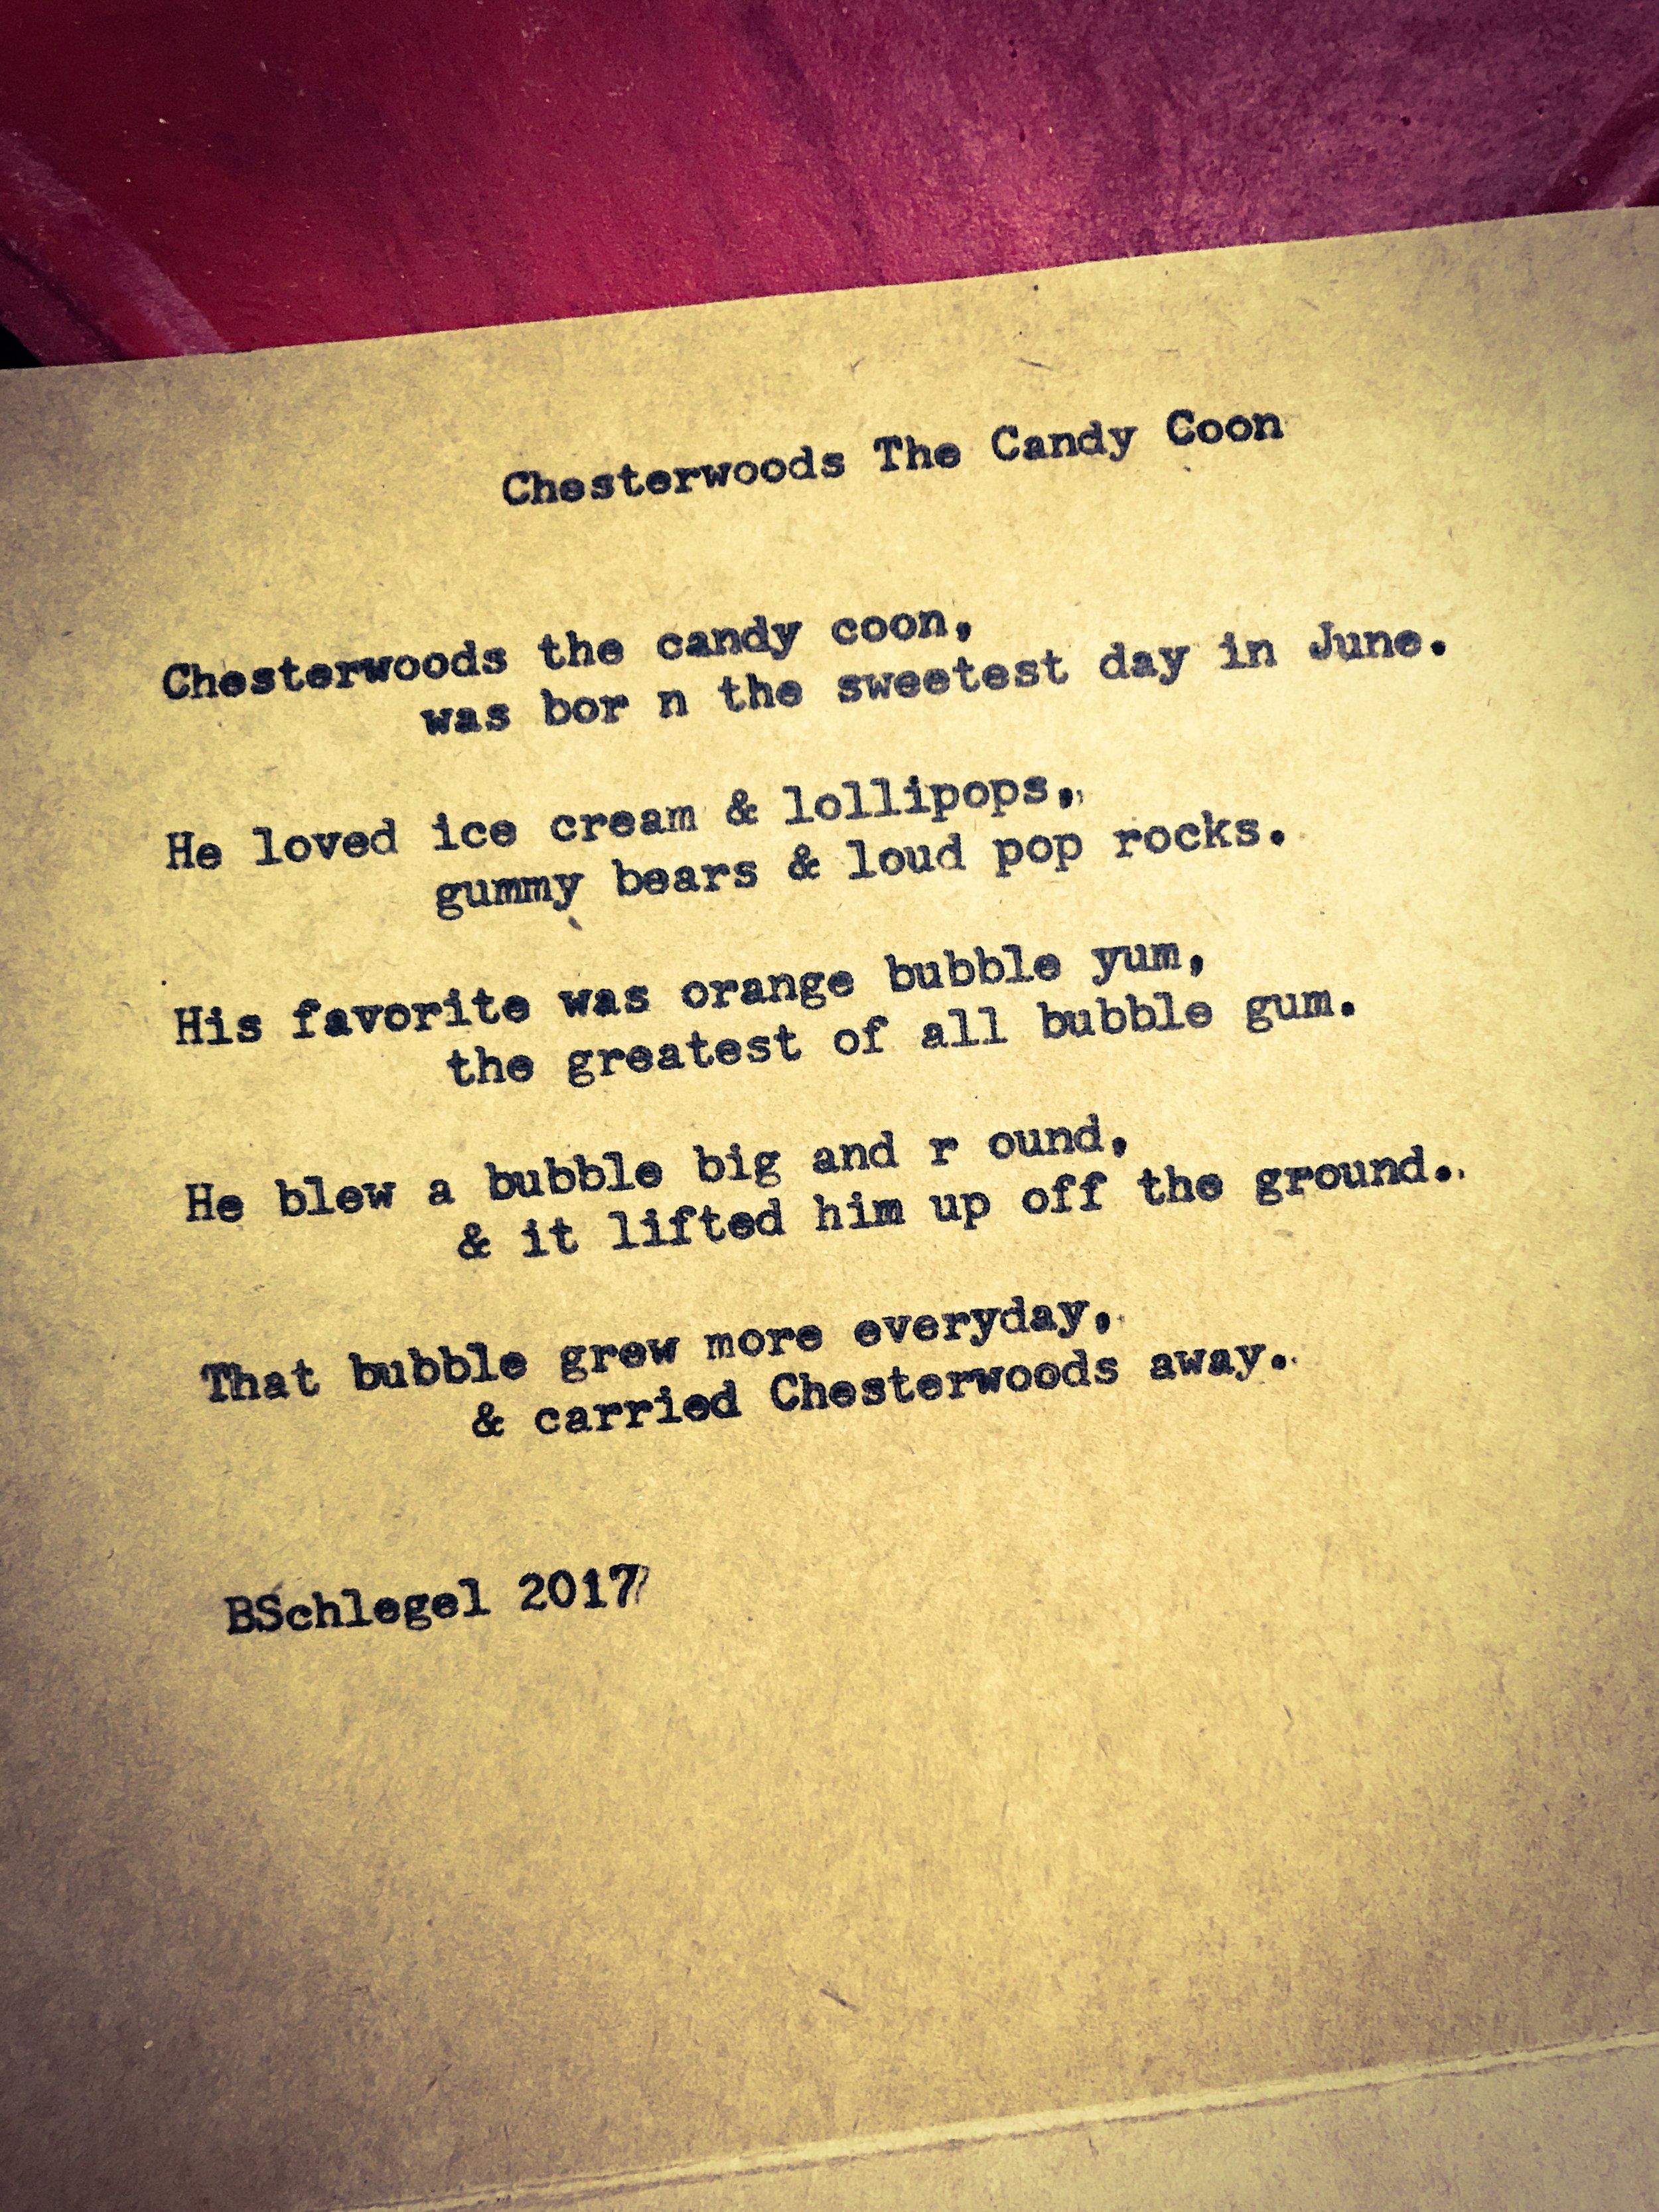 Chesterwoods The Candy Coon
Chesterwoods the candy coon,
was bor n the sweetest day in June.
He loved ice cream & lollipops,
gummy bears & loud pop rocks.
His favorite was orange bubble yum,
the greatest of all bubble gum.
He blew a bubble big and r ound,
& it lifted him up off the ground.
That bubble grew more everyday,
& carried Chesterwoods away.
BSchlegel 2017